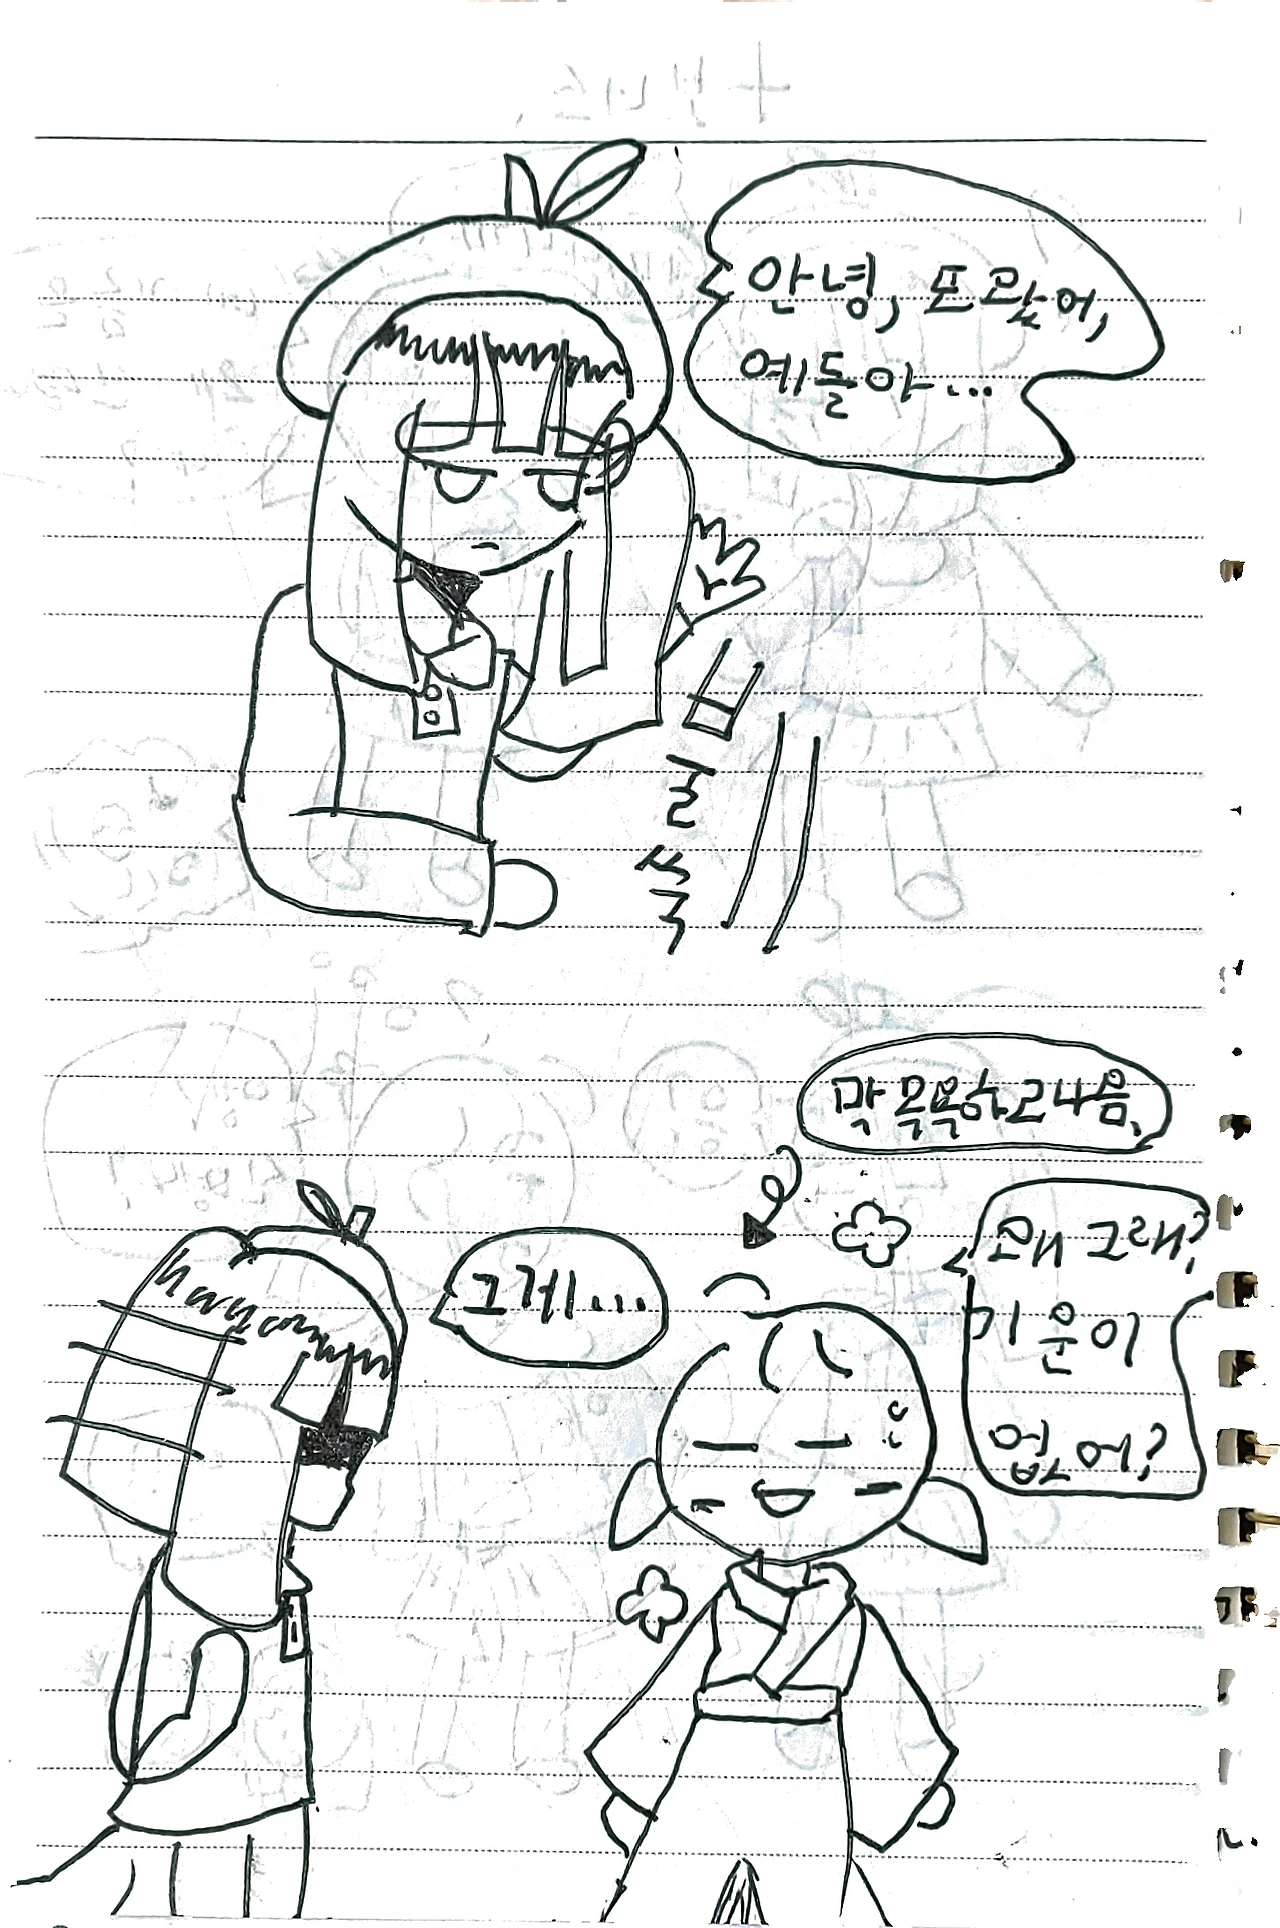 안녕, 또 왔어,
얘들아...
불쑥
막 목욕하고 나옴.
그게...
왜 그래?
기운이
없어?